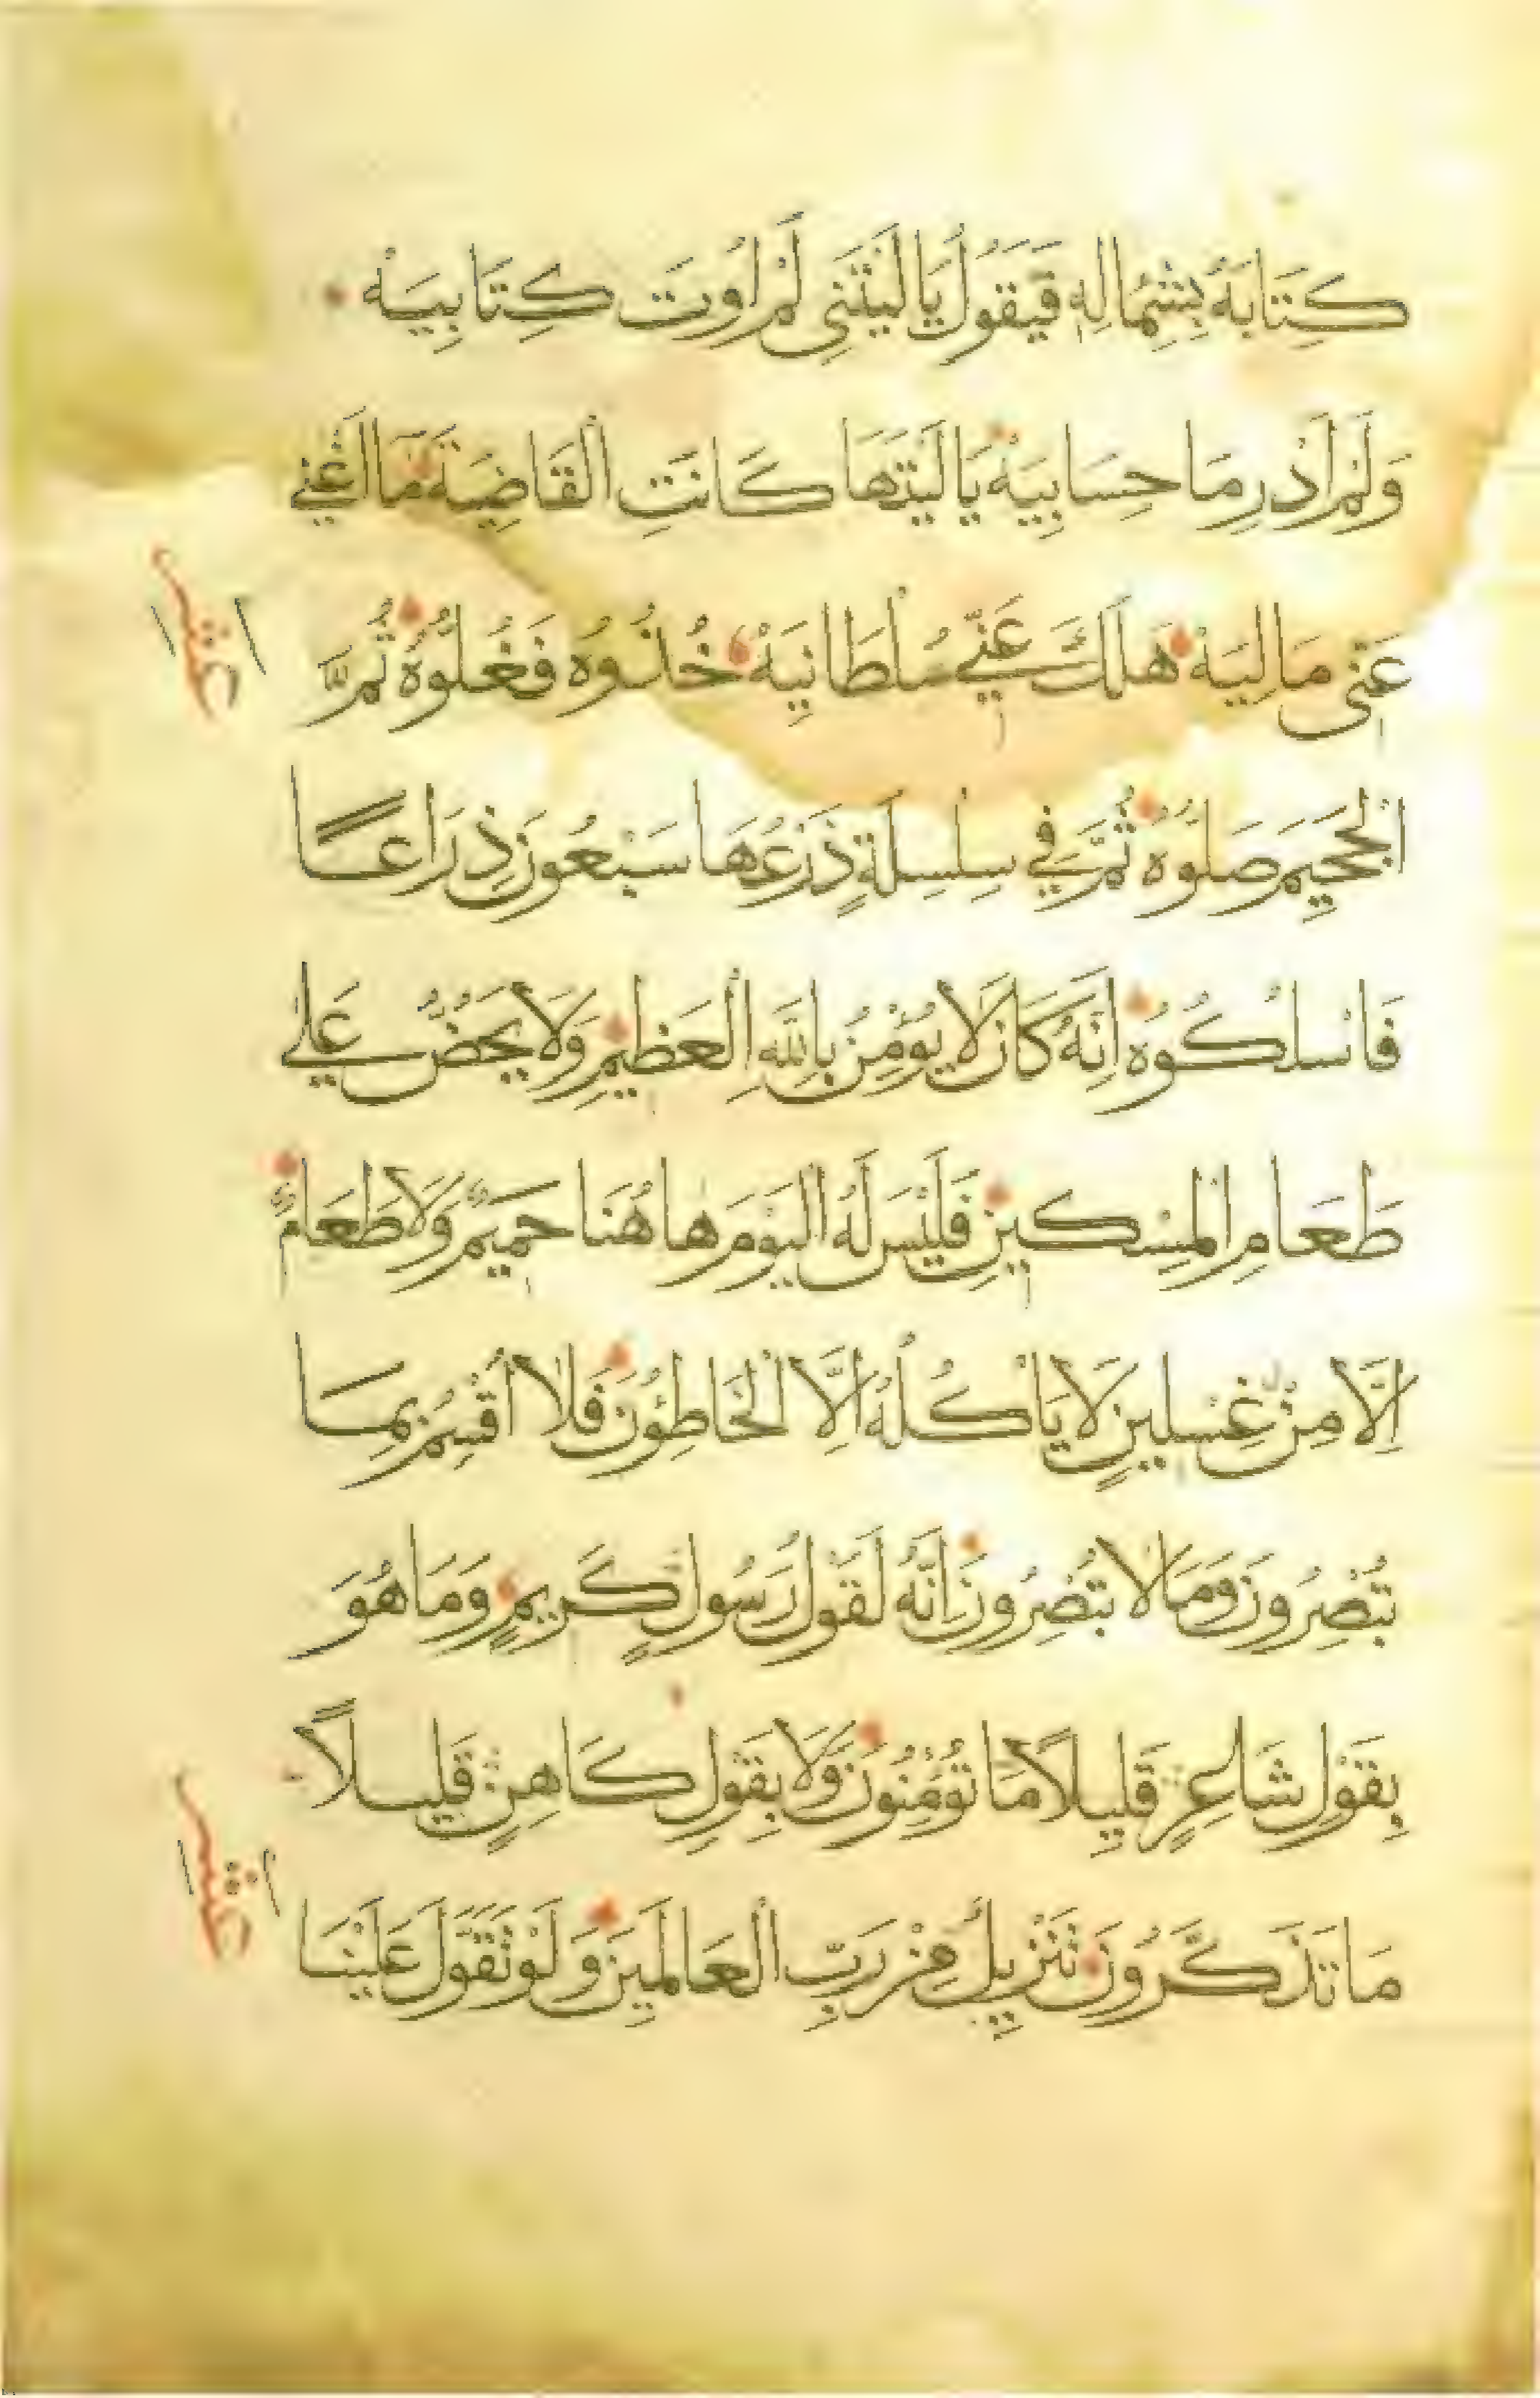 كِتَابَهُ بِشِمَالِهِ فَيَقُولُ يَا لَيْتَنِي لَمْ اُوتَ كِتَابِيَهْ
وَلَمْ اَدْرِ مَا حِسَابِيَهْ يَا لَيْتَهَا كَانَتِ الْقَاضِيَةَ مَا اَغْنٰي
عَنِّى مَالِيَهْ هَلَكَ عَنِّي سُلْطَانِيَهْ خُذُوهُ فَغُلُّوهُ ثُمَّ
عشر
الْجَحِيمَ صَلُّوهُ ثُمَّ فِي سِلْسِلَةٍ ذَرْعُهَا سَبْعُونَ ذِرَاعًا
فَاسْلُكُوهُ اِنَّهُ كَانَ لَا يُؤْمِنُ بِاللَّهِ الْعَظِيمِ وَلَا يَحُضُّ عَلٰي
طَعَامِ الْمِسْكِينِ فَلَيْسَ لَهُ الْيَوْمَ هَاهُنَا حَمِيمٌ وَلَا طَعَامٌ
اِلَّا مِنْ غِسْلِينٍ لَا يَاْكُلُهُ اِلَّا الْخَاطِؤُنَ فَلَا اُقْسِمُ بِمَا
تُبْصِرُونَ وَمَا لَا تُبْصِرُونَ اِنَّهُ لَقَوْلُ رَسُولٍ كَرِيمٍ وَمَا هُوَ
بِقَوْلِ شَاعِرٍ قَلِيلًا مَا تُؤْمِنُونَ وَلَا بِقَوْلِ كَاهِنٍ قَلِيلًا
مَا تَذَكَّرُونَ تَنْزِيلٌ مِنْ رَبِّ الْعَالَمِينَ وَلَوْ تَقَوَّلَ عَلَيْنَا
عشر